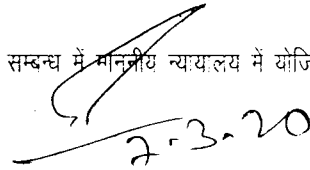 सम्बन्ध में माननीय न्यायालय में योजि
7.3.20